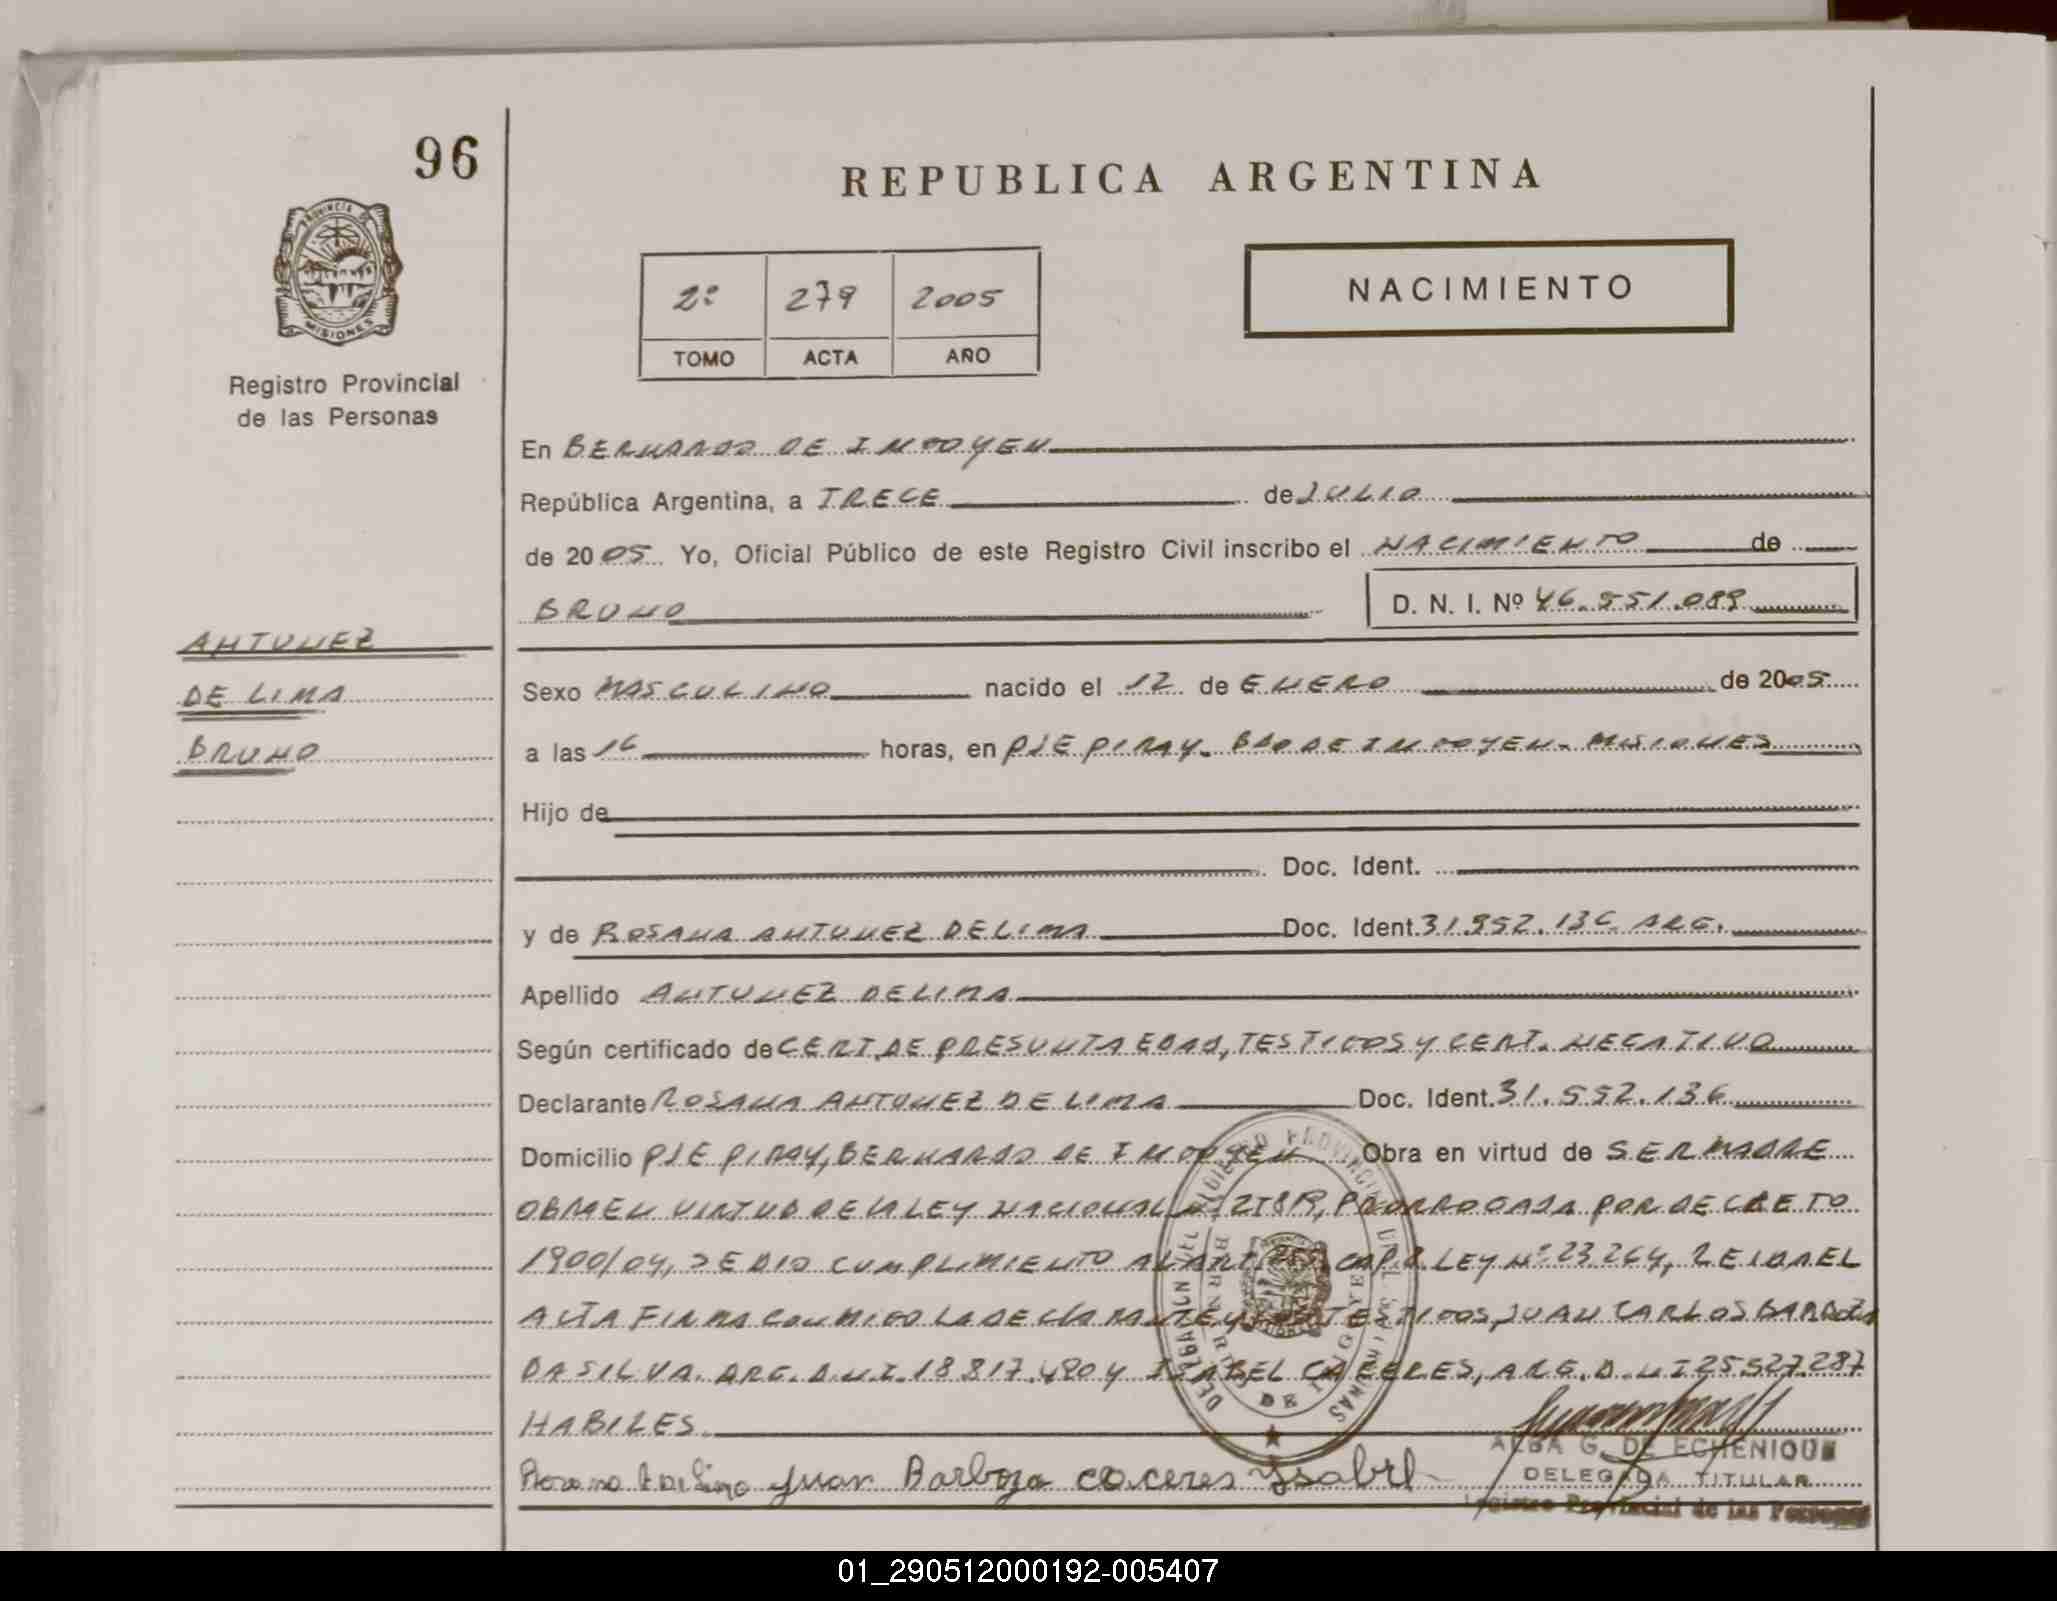 96
REPUBLICA ARGENTINA
PROVINCIA DE
MISIONES
2º 279 2005
TOMO ACTA AÑO
NACIMIENTO
Registro Provincial
de las Personas
En BERNARDO DE IRIGOYEN
República Argentina, a TRECE de JULIO
de 2005 Yo, Oficial Público de este Registro Civil inscribo el NACIMIENTO de
BRUNO D. N. I. Nº 46.551.089
ANTUNEZ
DE LIMA
BRUNO
Sexo MASCULINO nacido el 12 de ENERO de 2005
a las 16 horas, en PJE PIRAY. BDO DE IRIGOYEN. MISIONES
Hijo de
Doc. Ident.
y de ROSANA ANTUNEZ DE LIMA Doc. Ident. 31.552.136 ARG.
Apellido ANTUNEZ DE LIMA
Según certificado de CERT. DE PRESUNTA EDAD, TESTIGOS Y CERT. NEGATIVO
Declarante ROSANA ANTUNEZ DE LIMA Doc. Ident. 31.552.136
Domicilio PJE PIRAY, BERNARDO DE IRIGOYEN Obra en virtud de SER MADRE
OBRA EN VIRTUD DE LA LEY NACIONAL PRORROGADA POR DECRETO
1900/04, SE DIO CUMPLIMIENTO AL ART. LEY Nº 23264, LEIDA EL
ACTA FIRMA CONMIGO LA DECLARANTE Y TESTIGOS, JUAN CARLOS BARBOZA
DA SILVA. ARG. D.N.I. 18.817.490 Y ISABEL CACERES, ARG. D.N.I 25.527.287
HABILES
Juan Barboza caceres Ysabel
ALBA G. DE ECHENIQUE
DELEGADA TITULAR
Registro Provincial de las Personas
01_290512000192-005407